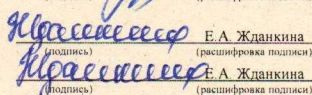 Жданкина Е.А. Жданкина
(подпись) (расшифровка подписи)
Жданкина Е.А. Жданкина
(подпись) (расшифровка подписи)